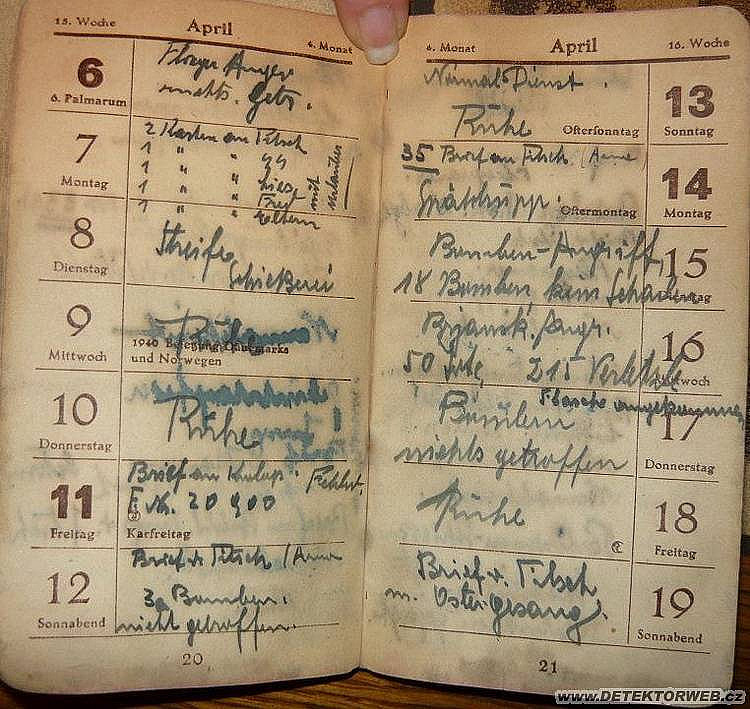 15. Woche
April
4. Monat
6
6. Palmarum
Flieger Angr.
nichts. Getr.
7
Montag
2 Karten an Fitsch
1 " "
1 " "
1 " "
1 " " Eltern
mit
8
Dienstag
Streife
Schießerei
9
Mittwoch
Ruhe
1940 Besetzung Dänemarks
und Norwegen
10
Donnerstag
Ruhe
11
Freitag
Brief an
No. 20 900
Karfreitag
12
Sonnabend
Brief v. Fitsch /
30 Bomben.
nicht getroffen.
20
4. Monat
April
16. Woche
Normal-Dienst.
Ruhe
Ostersonntag
13
Sonntag
35 Brief an Fitsch /
Ostermontag
14
Montag
Bomben-Angriff,
18 Bomben kein Schaden
15
Dienstag
Brjansk. Angr.
50 Tote, 215 Verletzte
16
Mittwoch
Flasche angekommen
Bomben
nichts getroffen
17
Donnerstag
Ruhe
18
Freitag
Brief v. Fitsch
m. Ostergesang.
19
Sonnabend
21
www.DETEKTORWEB.cz